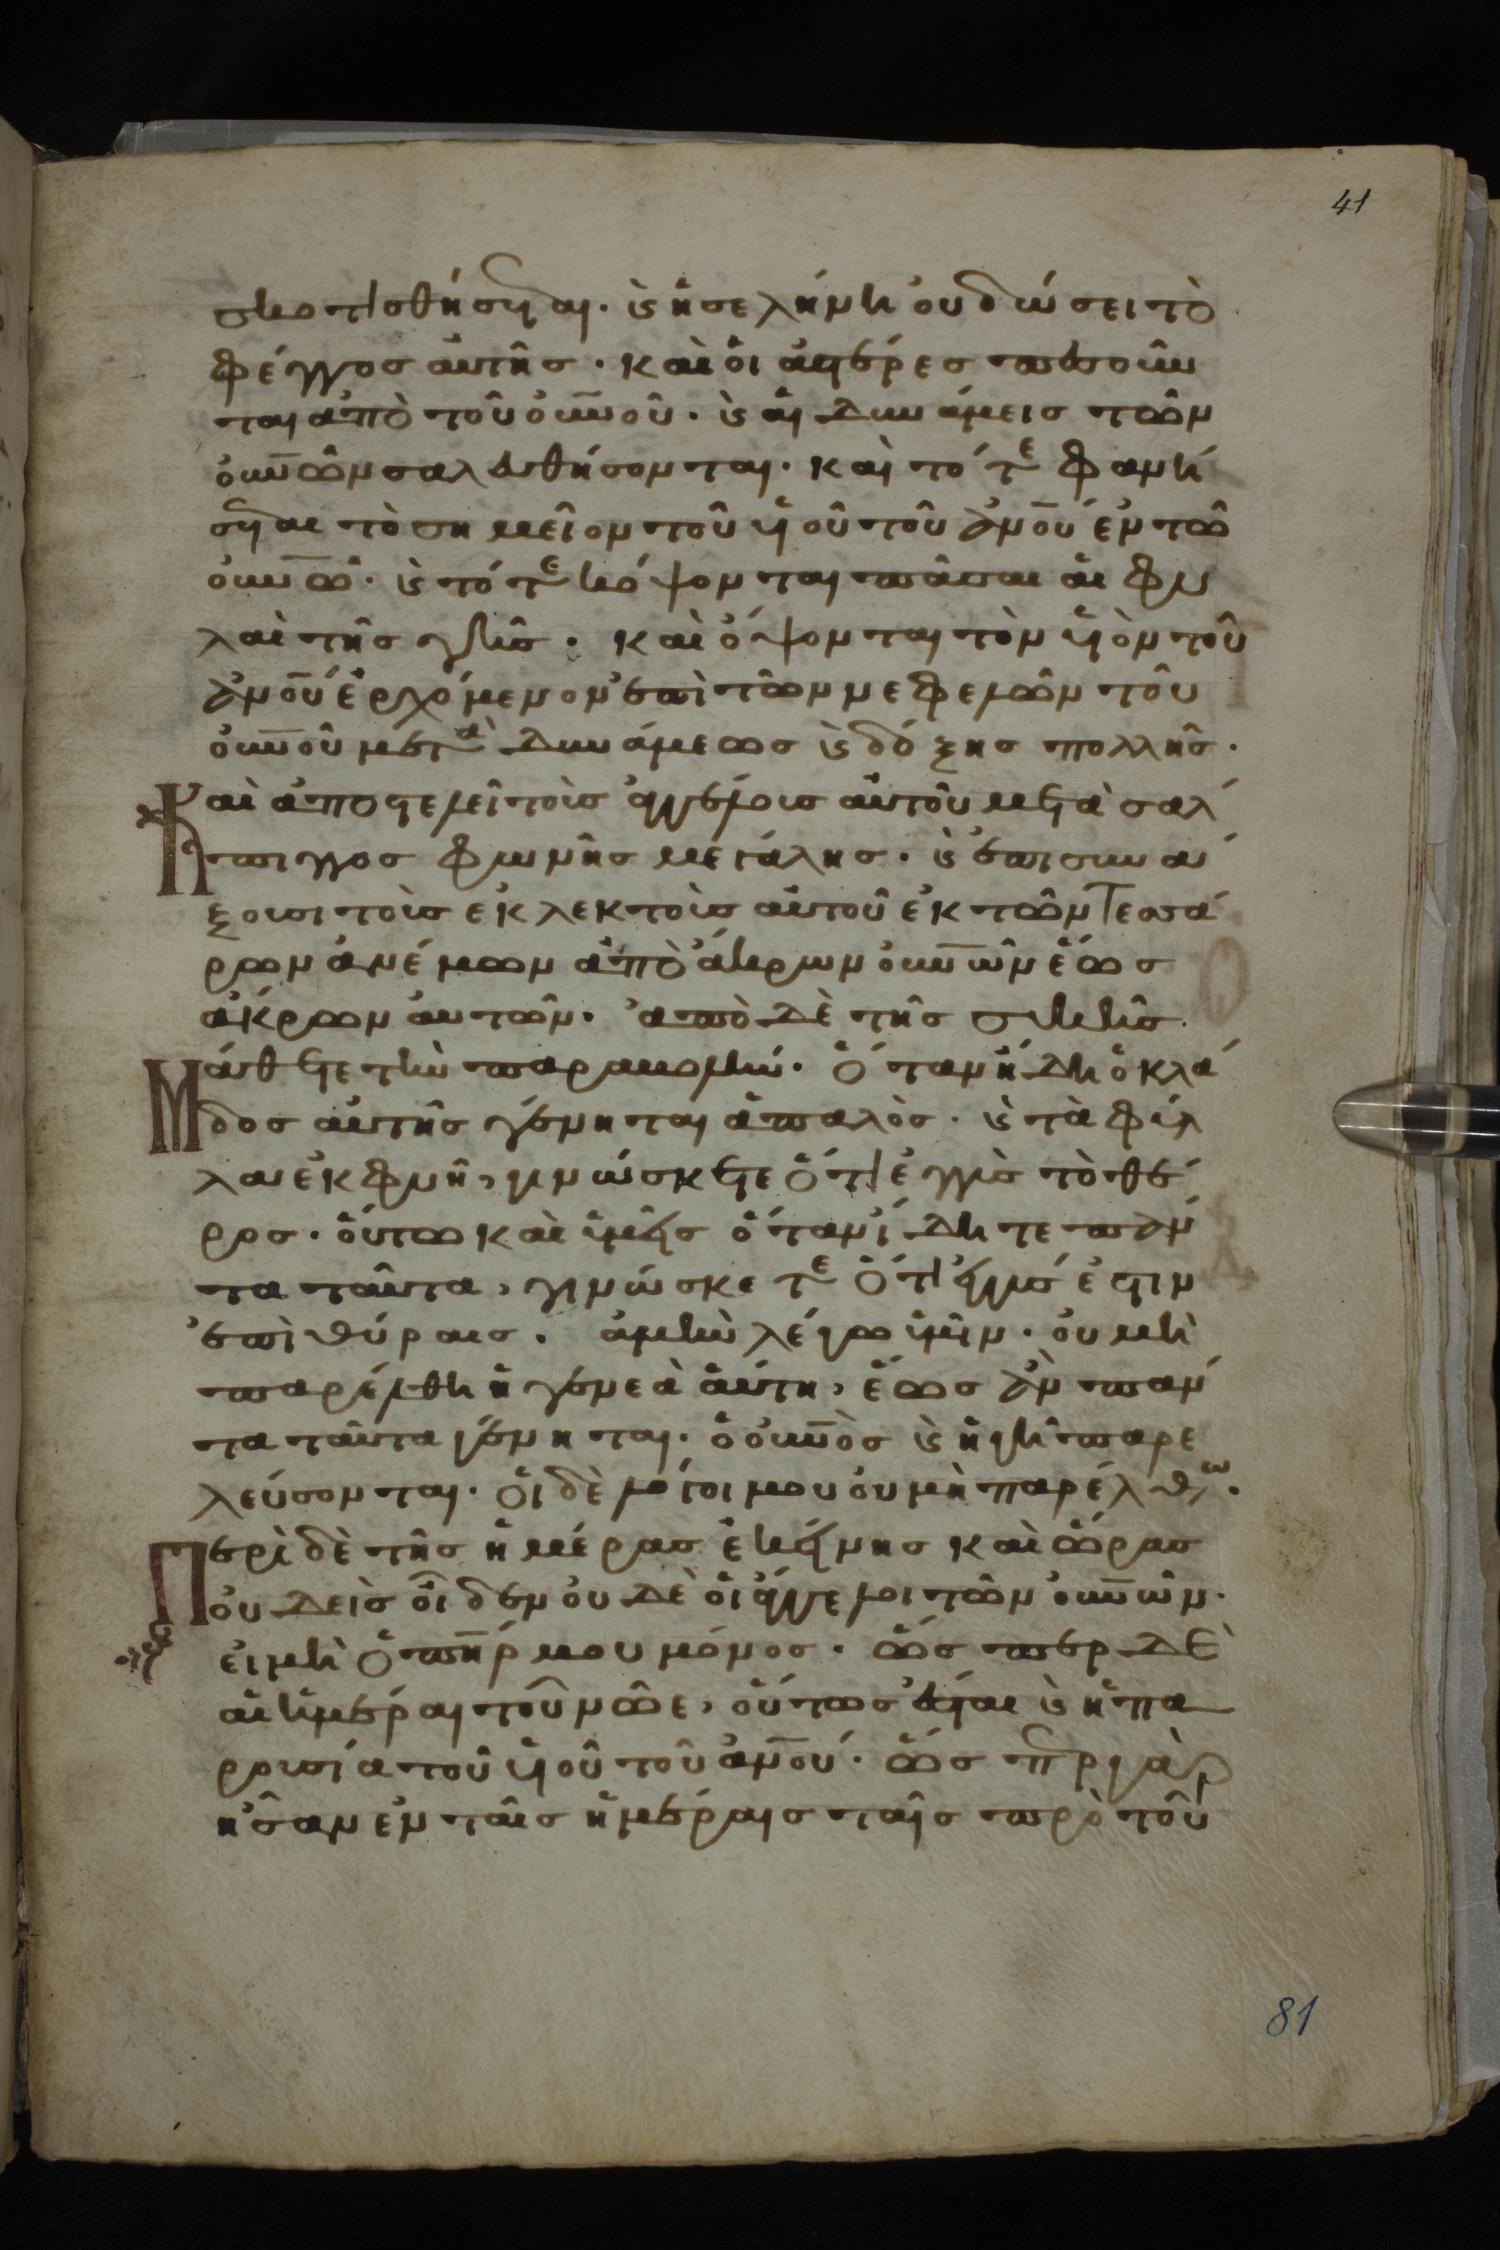 41
σκοτισθήσεται. καὶ ἡ σελήνη οὐ δώσει τὸ
φέγγος αὐτῆς. καὶ οἱ ἀστέρες πεσοῦν
ται ἀπὸ τοῦ οὐνοῦ. καὶ αἱ δυνάμεις τῶν
οὐνῶν σαλευθήσονται. καὶ τότε φανή
σεται τὸ σημεῖον τοῦ υἱοῦ τοῦ ἀνοῦ ἐν τῶ
οὐνῶ. καὶ τότε κόψονται πᾶσαι αἱ φυ
λαὶ τῆς γῆς. καὶ ὄψονται τὸν υἱὸν τοῦ
ἀνοῦ ἐρχόμενον ἐπὶ τῶν νεφελῶν τοῦ
οὐνοῦ μετὰ δυνάμεως καὶ δόξης πολλῆς.
Καὶ ἀποστελεῖ τοὺς ἀγγέλους αὐτοῦ μετὰ σάλ
πιγγος φωνῆς μεγάλης. καὶ ἐπισυνά
ξουσι τοὺς ἐκλεκτοὺς αὐτοῦ ἐκ τῶν τεσσά
ρων ἀνέμων ἀπὸ ἄκρων οὐνῶν ἕως
ἄκρων αὐτῶν. ἀπὸ δὲ τῆς συκῆς
Μάθετε τὴν παραβολήν. ὅταν ἤδη ὁ κλά
δος αὐτῆς γένηται ἁπαλὸς. καὶ τὰ φύλ
λα ἐκφυῆ, γινώσκετε ὅτι ἐγγὺς τὸ θέ
ρος. οὕτω καὶ ὑμεῖς ὅταν ἴδητε πάν
τα ταῦτα, γινώσκετε ὅτι ἐγγύς ἐστιν
ἐπὶ θύραις. ἀμὴν λέγω ὑμῖν. οὐ μὴ
παρέλθη ἡ γενεὰ αὕτη, ἕως ἂν πάν
τα ταῦτα γένηται. ὁ οὐνὸς καὶ ἡ γῆ παρε
λεύσονται. οἱ δὲ λόγοι μου οὐ μὴ παρέλθω.
Περὶ δὲ τῆς ἡμέρας ἐκείνης καὶ ὥρας
οὐδεὶς οἶδεν οὐδὲ οἱ ἄγγελοι τῶν οὐνῶν.
εἰ μὴ ὁ πηρ μου μόνος. ὥσπερ δὲ
αἱ ἡμέραι τοῦ νῶε, οὕτως ἔσται καὶ ἡ πα
ρουσία τοῦ υἱοῦ τοῦ ἀνοῦ. ὥσπερ γὰρ
ἦσαν ἐν ταῖς ἡμέραις ταῖς πρὸ τοῦ
81